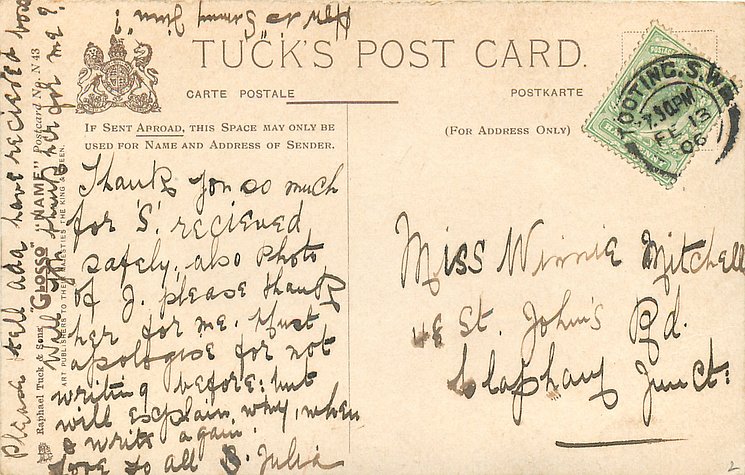 TUCK'S POST CARD.
CARTE POSTALE
POSTKARTE
IF SENT ABROAD, THIS SPACE MAY ONLY BE
USED FOR NAME AND ADDRESS OF SENDER.
(FOR ADDRESS ONLY)
TOOTING. S.W.
7.30PM
FE 13
06
Thanks you so much
for 'S'. recieved
safely, also Photo
of J. please thank
her for me. Must
apologise for not
writing before: but
will explain why, when
I write again.
Love to all B. Julia
Miss Winnie Mitchell
48 St. John's Rd.
Clapham Junct:
Please tell ada have recieved box
Will you thank her for me?
Raphael Tuck & Sons' "GLOSSO" "NAME" Postcard No. N 43
ART PUBLISHERS TO THEIR MAJESTIES THE KING & QUEEN.